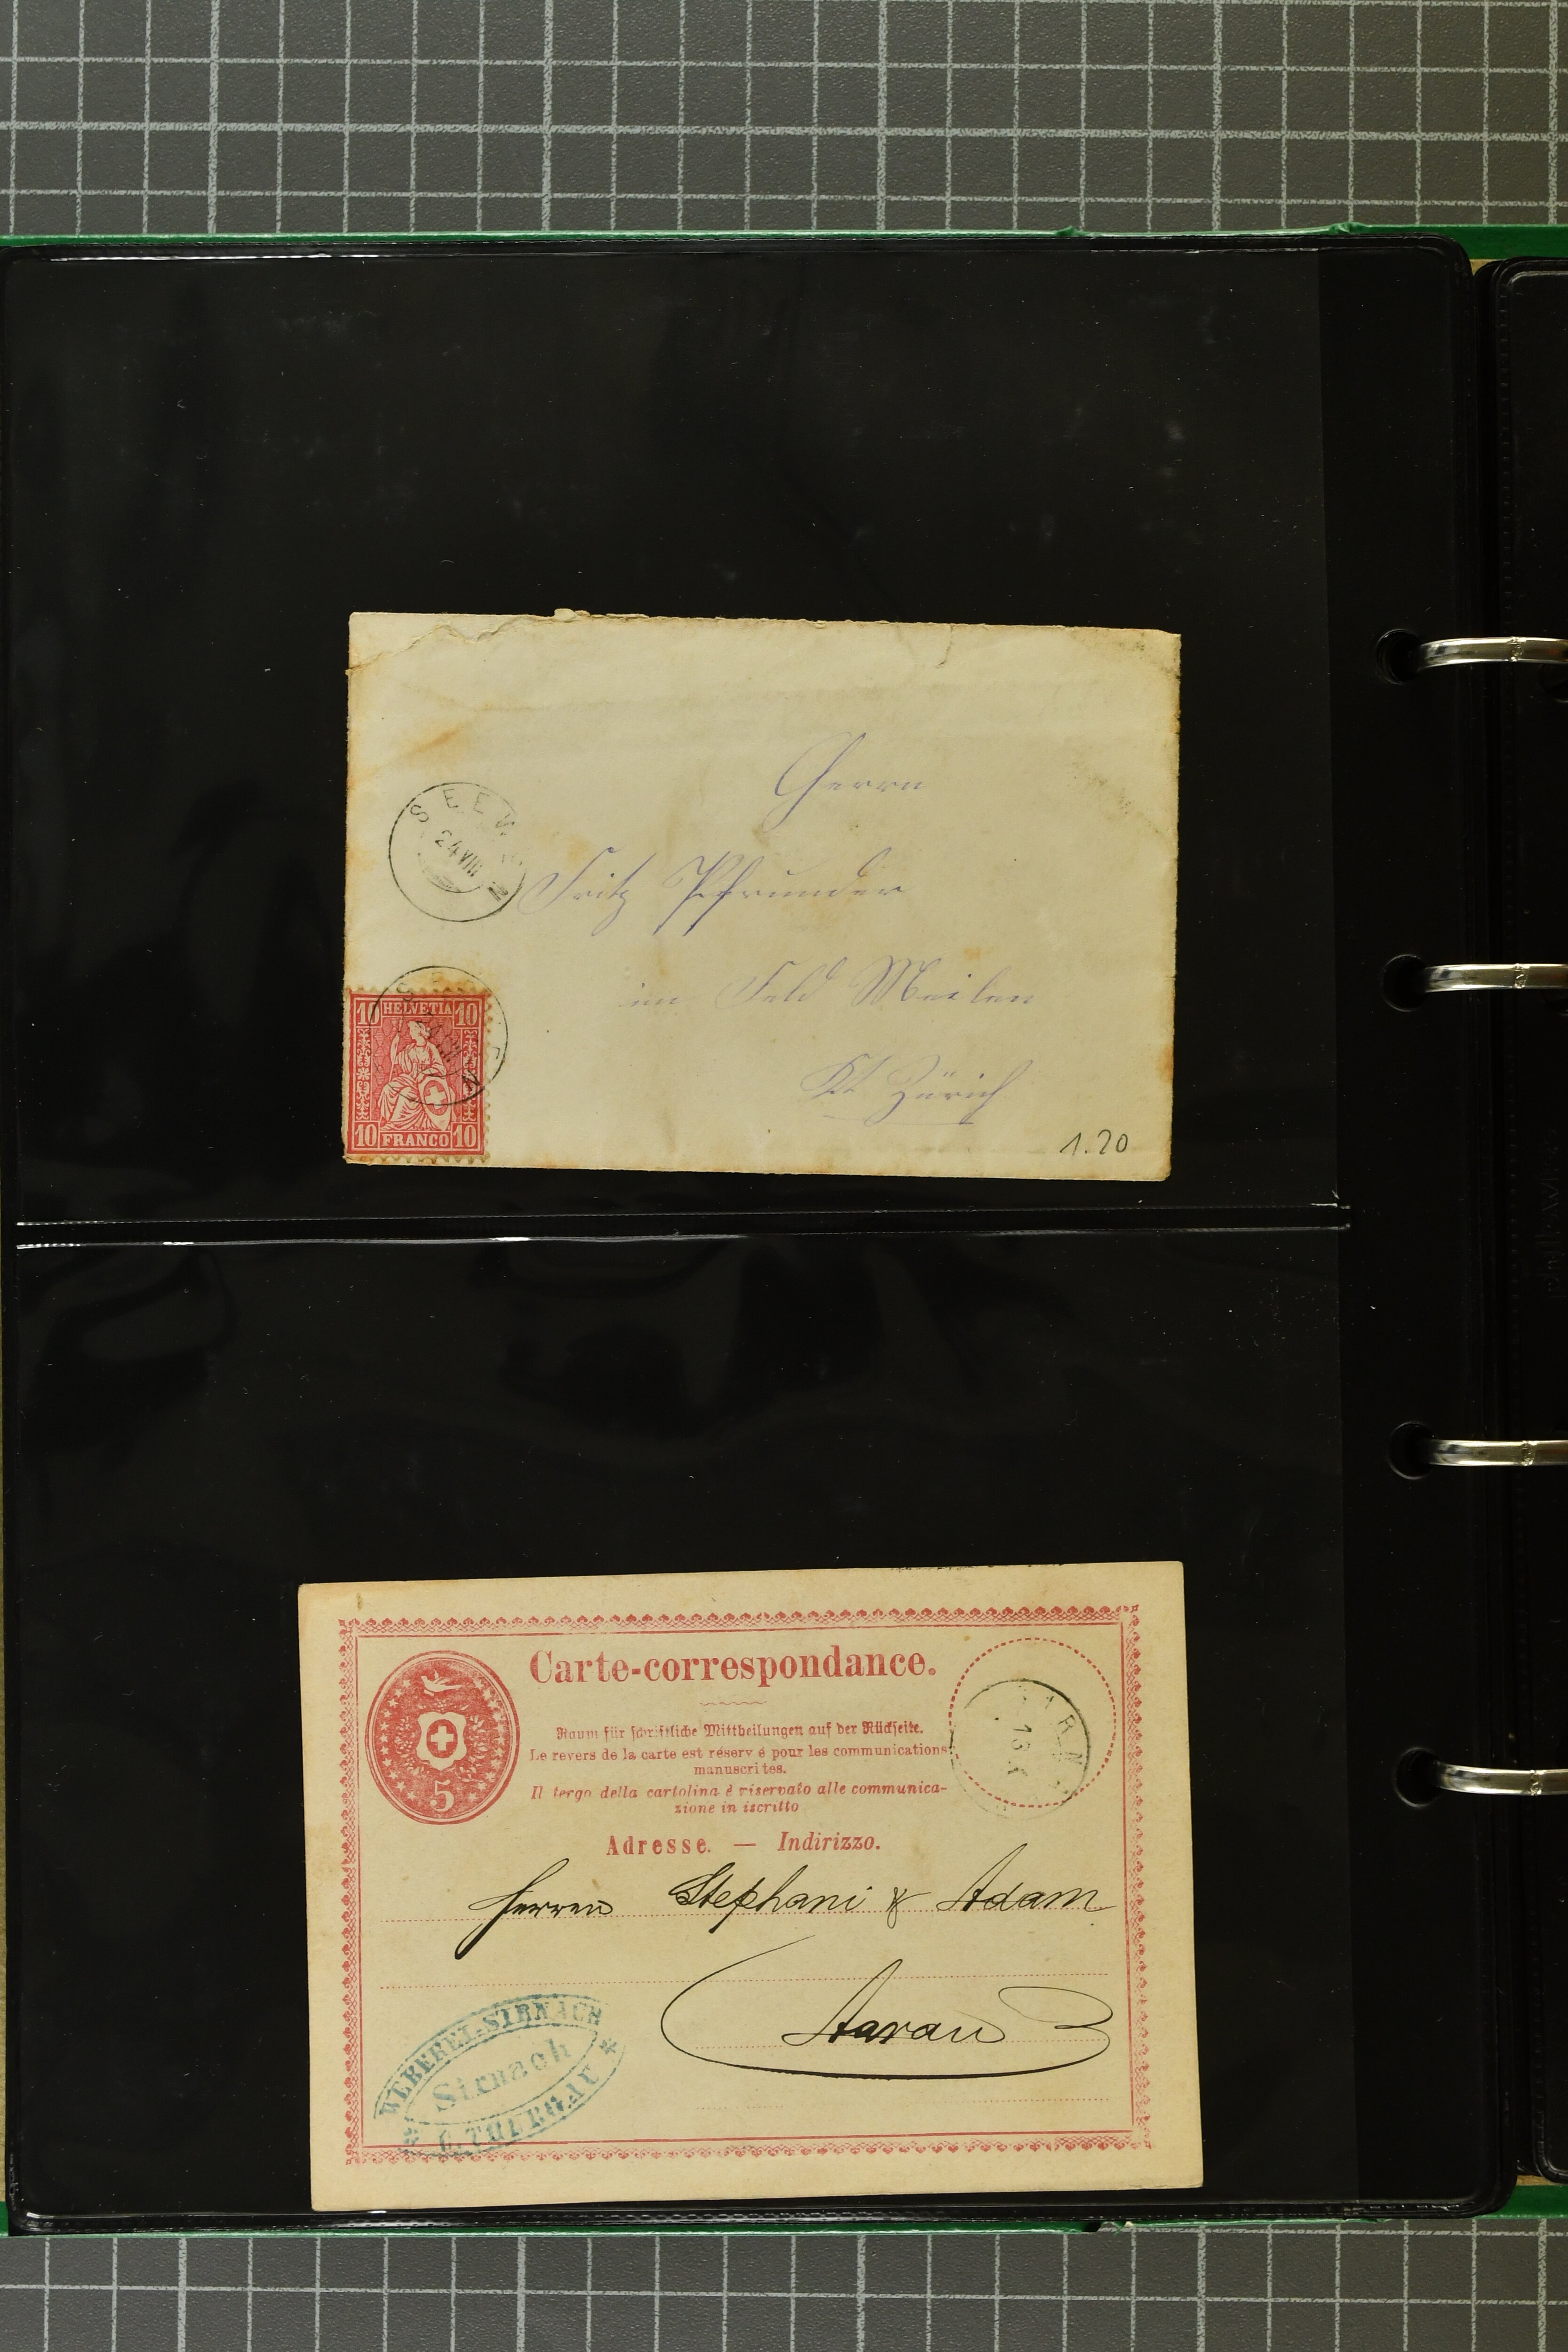 Herrn
SEEW
24 VIII
Fritz Pfrunder
im Feld Meilen
Kt. Zürich
10 HELVETIA 10
10 FRANCO 10
1.20
Carte-correspondance.
Raum für schriftliche Mittheilungen auf der Rückseite.
Le revers de la carte est réservé pour les communications
manuscrites.
Il tergo della cartolina è riservato alle communica-
zione in iscritto
5
13 X
Adresse. — Indirizzo.
Herren Stephani & Adam
Aarau
WEBEREI-SIRNACH
Sirnach
C. THURGAU